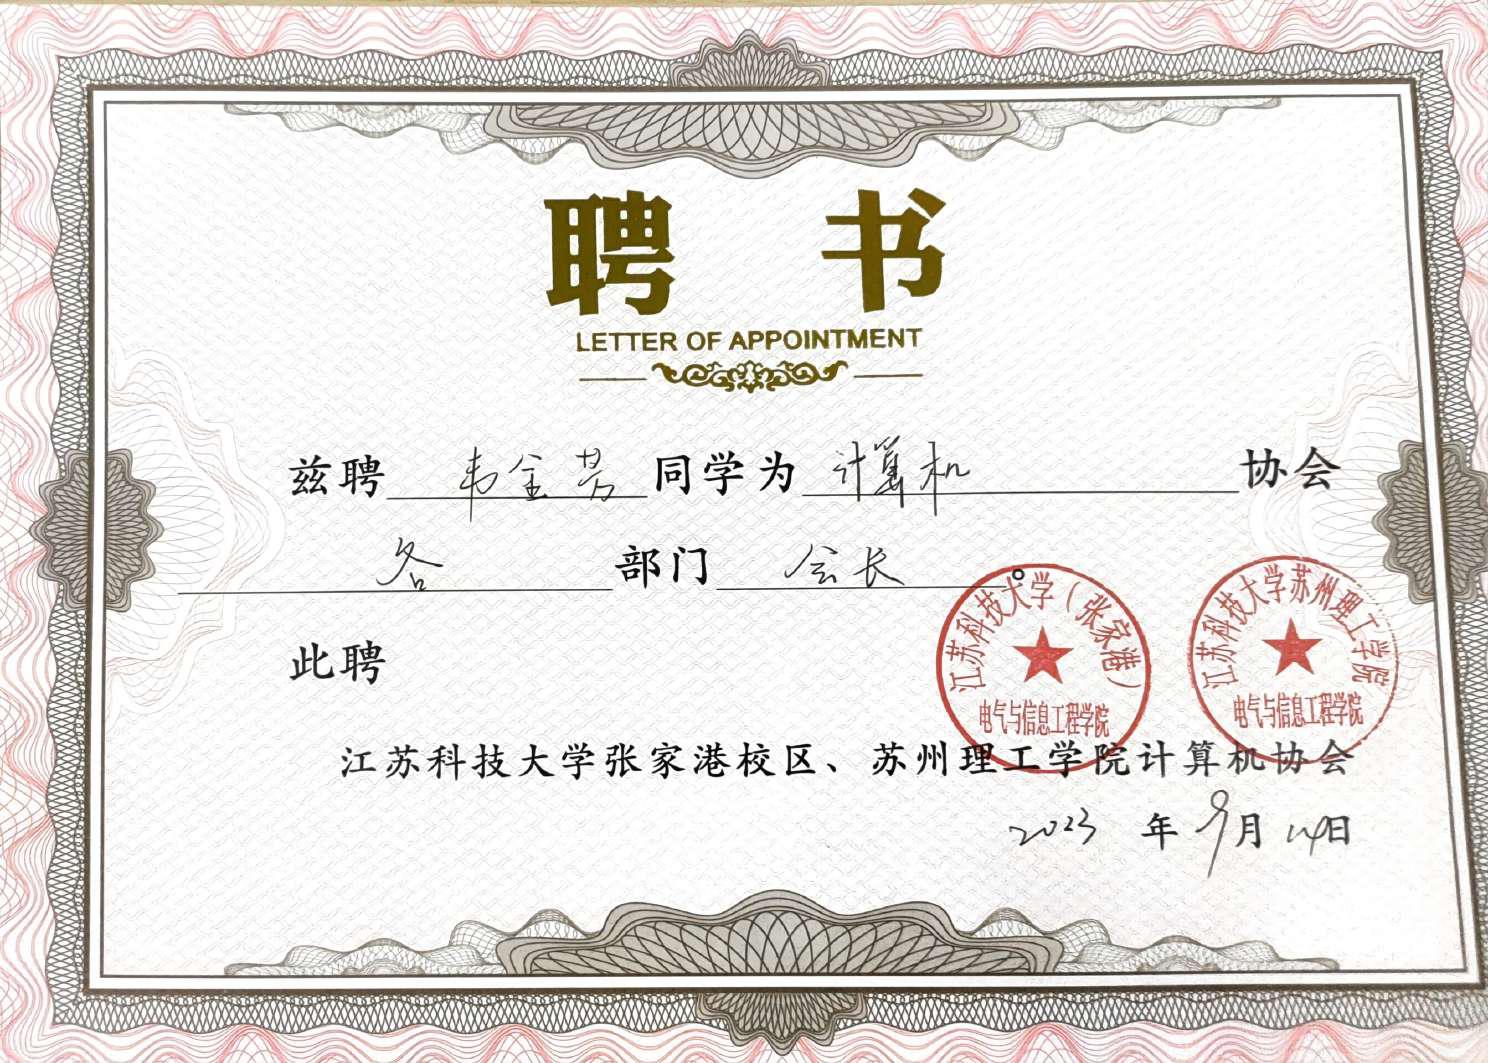 聘书
LETTER OF APPOINTMENT
兹聘 韦金芳 同学为 计算机 协会
各 部门 会长。
此聘
江苏科技大学（张家港）
电气与信息工程学院
江苏科技大学苏州理工学院
电气与信息工程学院
江苏科技大学张家港校区、苏州理工学院计算机协会
2023 年 9 月 14 日